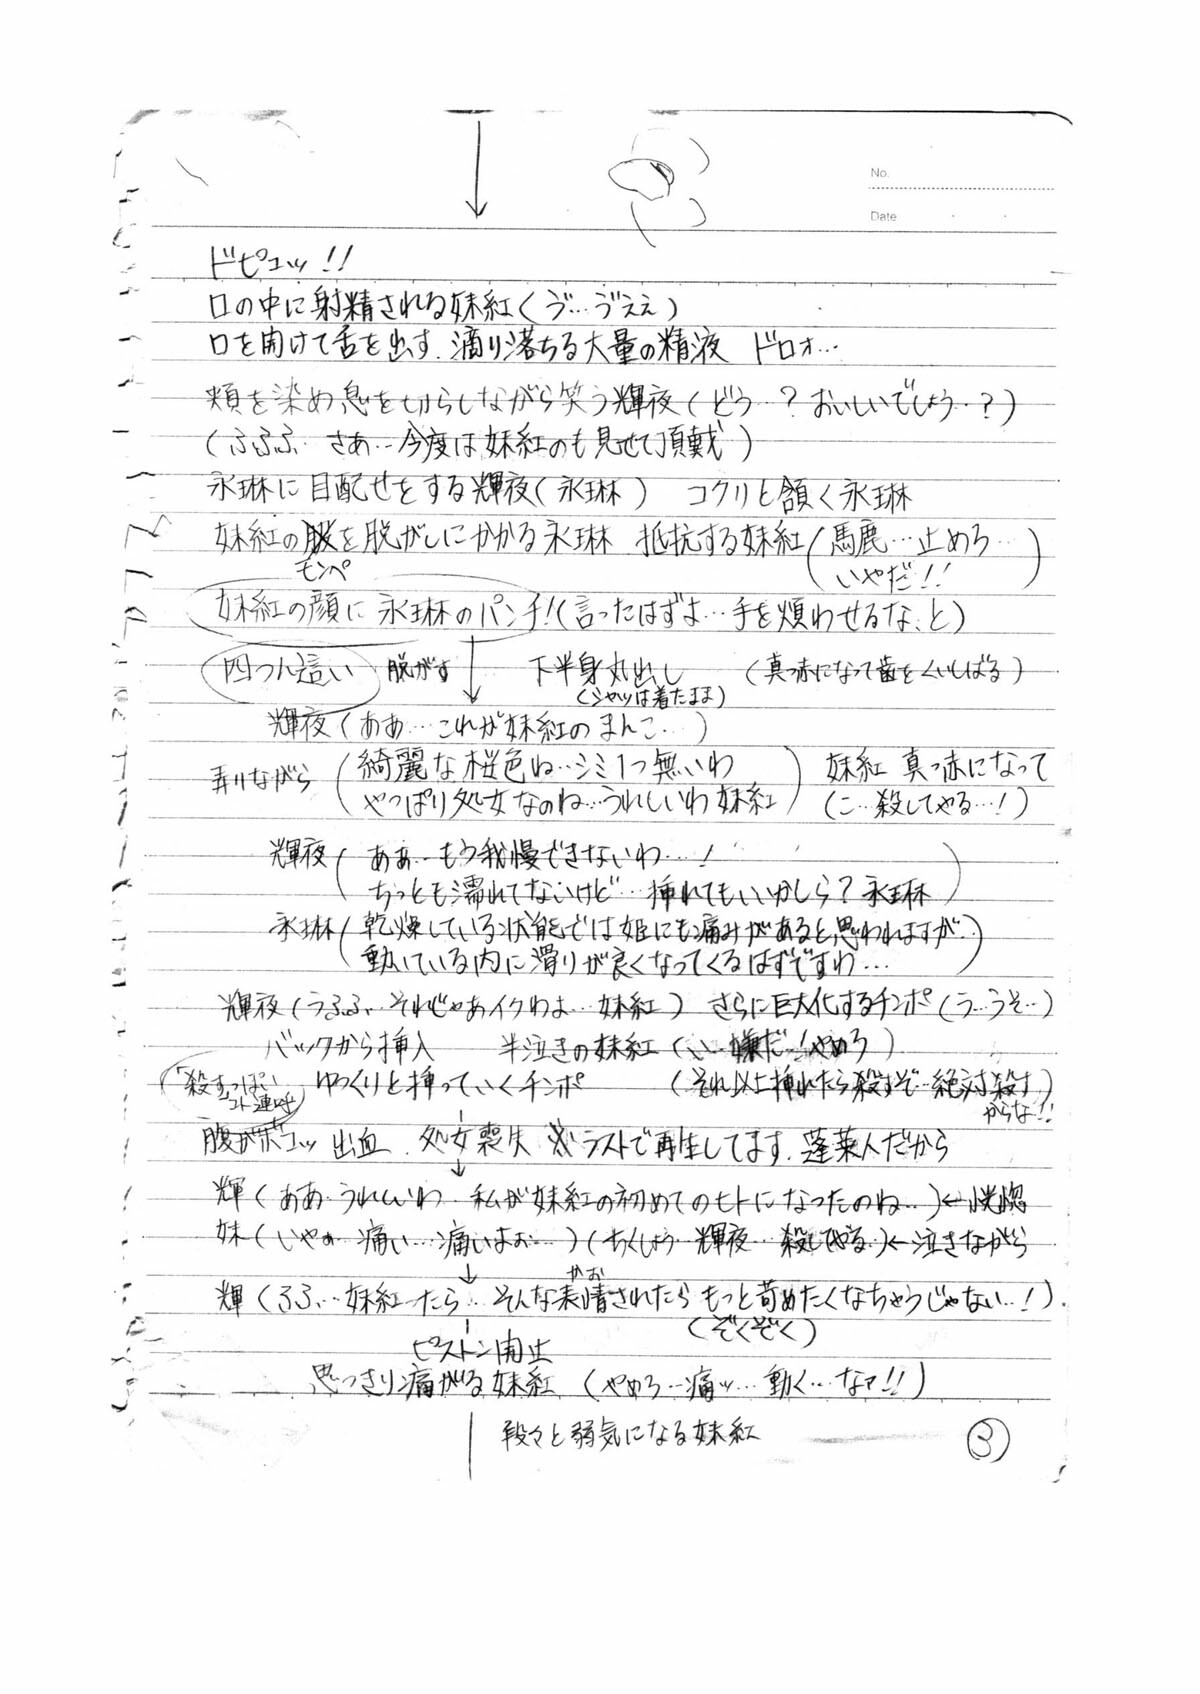 No.
Date
ドピュッ!!
口の中に射精される妹紅(ゔ…ゔえぇ)
口を開けて舌を出す.滴り落ちる大量の精液 ドロォ…
頬を染め息を切らしながら笑う輝夜(どう…?おいしいでしょう…?)
(ふふふ…さあ…今度は妹紅のも見せて頂戴)
永琳に目配せをする輝夜(永琳) コクリと頷く永琳
妹紅の服を脱がしにかかる永琳 抵抗する妹紅(馬鹿…止めろ…
モンペ いやだ!!)
妹紅の顔に永琳のパンチ!(言ったはずよ…手を煩わせるな、と)
四つん這い 脱がす 下半身丸出し (真っ赤になって歯をくいしばる)
(シャツは着たまま)
輝夜(ああ…これが妹紅のまんこ…)
弄りながら(綺麗な桜色ね…シミ1つ無いわ 妹紅 真っ赤になって
やっぱり処女なのね…うれしいわ妹紅) (こ…殺してやる…!)
輝夜(ああ…もう我慢できないわ…!
ちっとも濡れてないけど…挿れてもいいかしら?永琳)
永琳(乾燥している状態では姫にも痛みがあると思われますが…
動いている内に滑りが良くなってくるはずですわ…)
輝夜(うふふ…それじゃあイクわよ…妹紅) さらに巨大化するチンポ(う…うそ…)
バックから挿入 半泣きの妹紅(い…嫌だ…!やめろ)
「殺す」っぽいコト連呼 ゆっくりと挿っていくチンポ (それ以上挿れたら殺すぞ…絶対殺す
からな!!)
腹がボコッ 出血.処女喪失 ※ラストで再生してます.蓬莱人だから
輝(ああ…うれしいわ…私が妹紅の初めてのヒトになったのね…)←恍惚
妹(いやぁ…痛い…痛いよぉ…)(ちくしょう…輝夜…殺してやる…)←泣きながら
かお
輝(ふふ…妹紅ったら…そんな表情されたらもっと苛めたくなちゃうじゃない…!)
(ぞくぞく)
ピストン開始
思っきり痛がる妹紅 (やめろ…痛ッ…動く…なァ!!)
段々と弱気になる妹紅
③